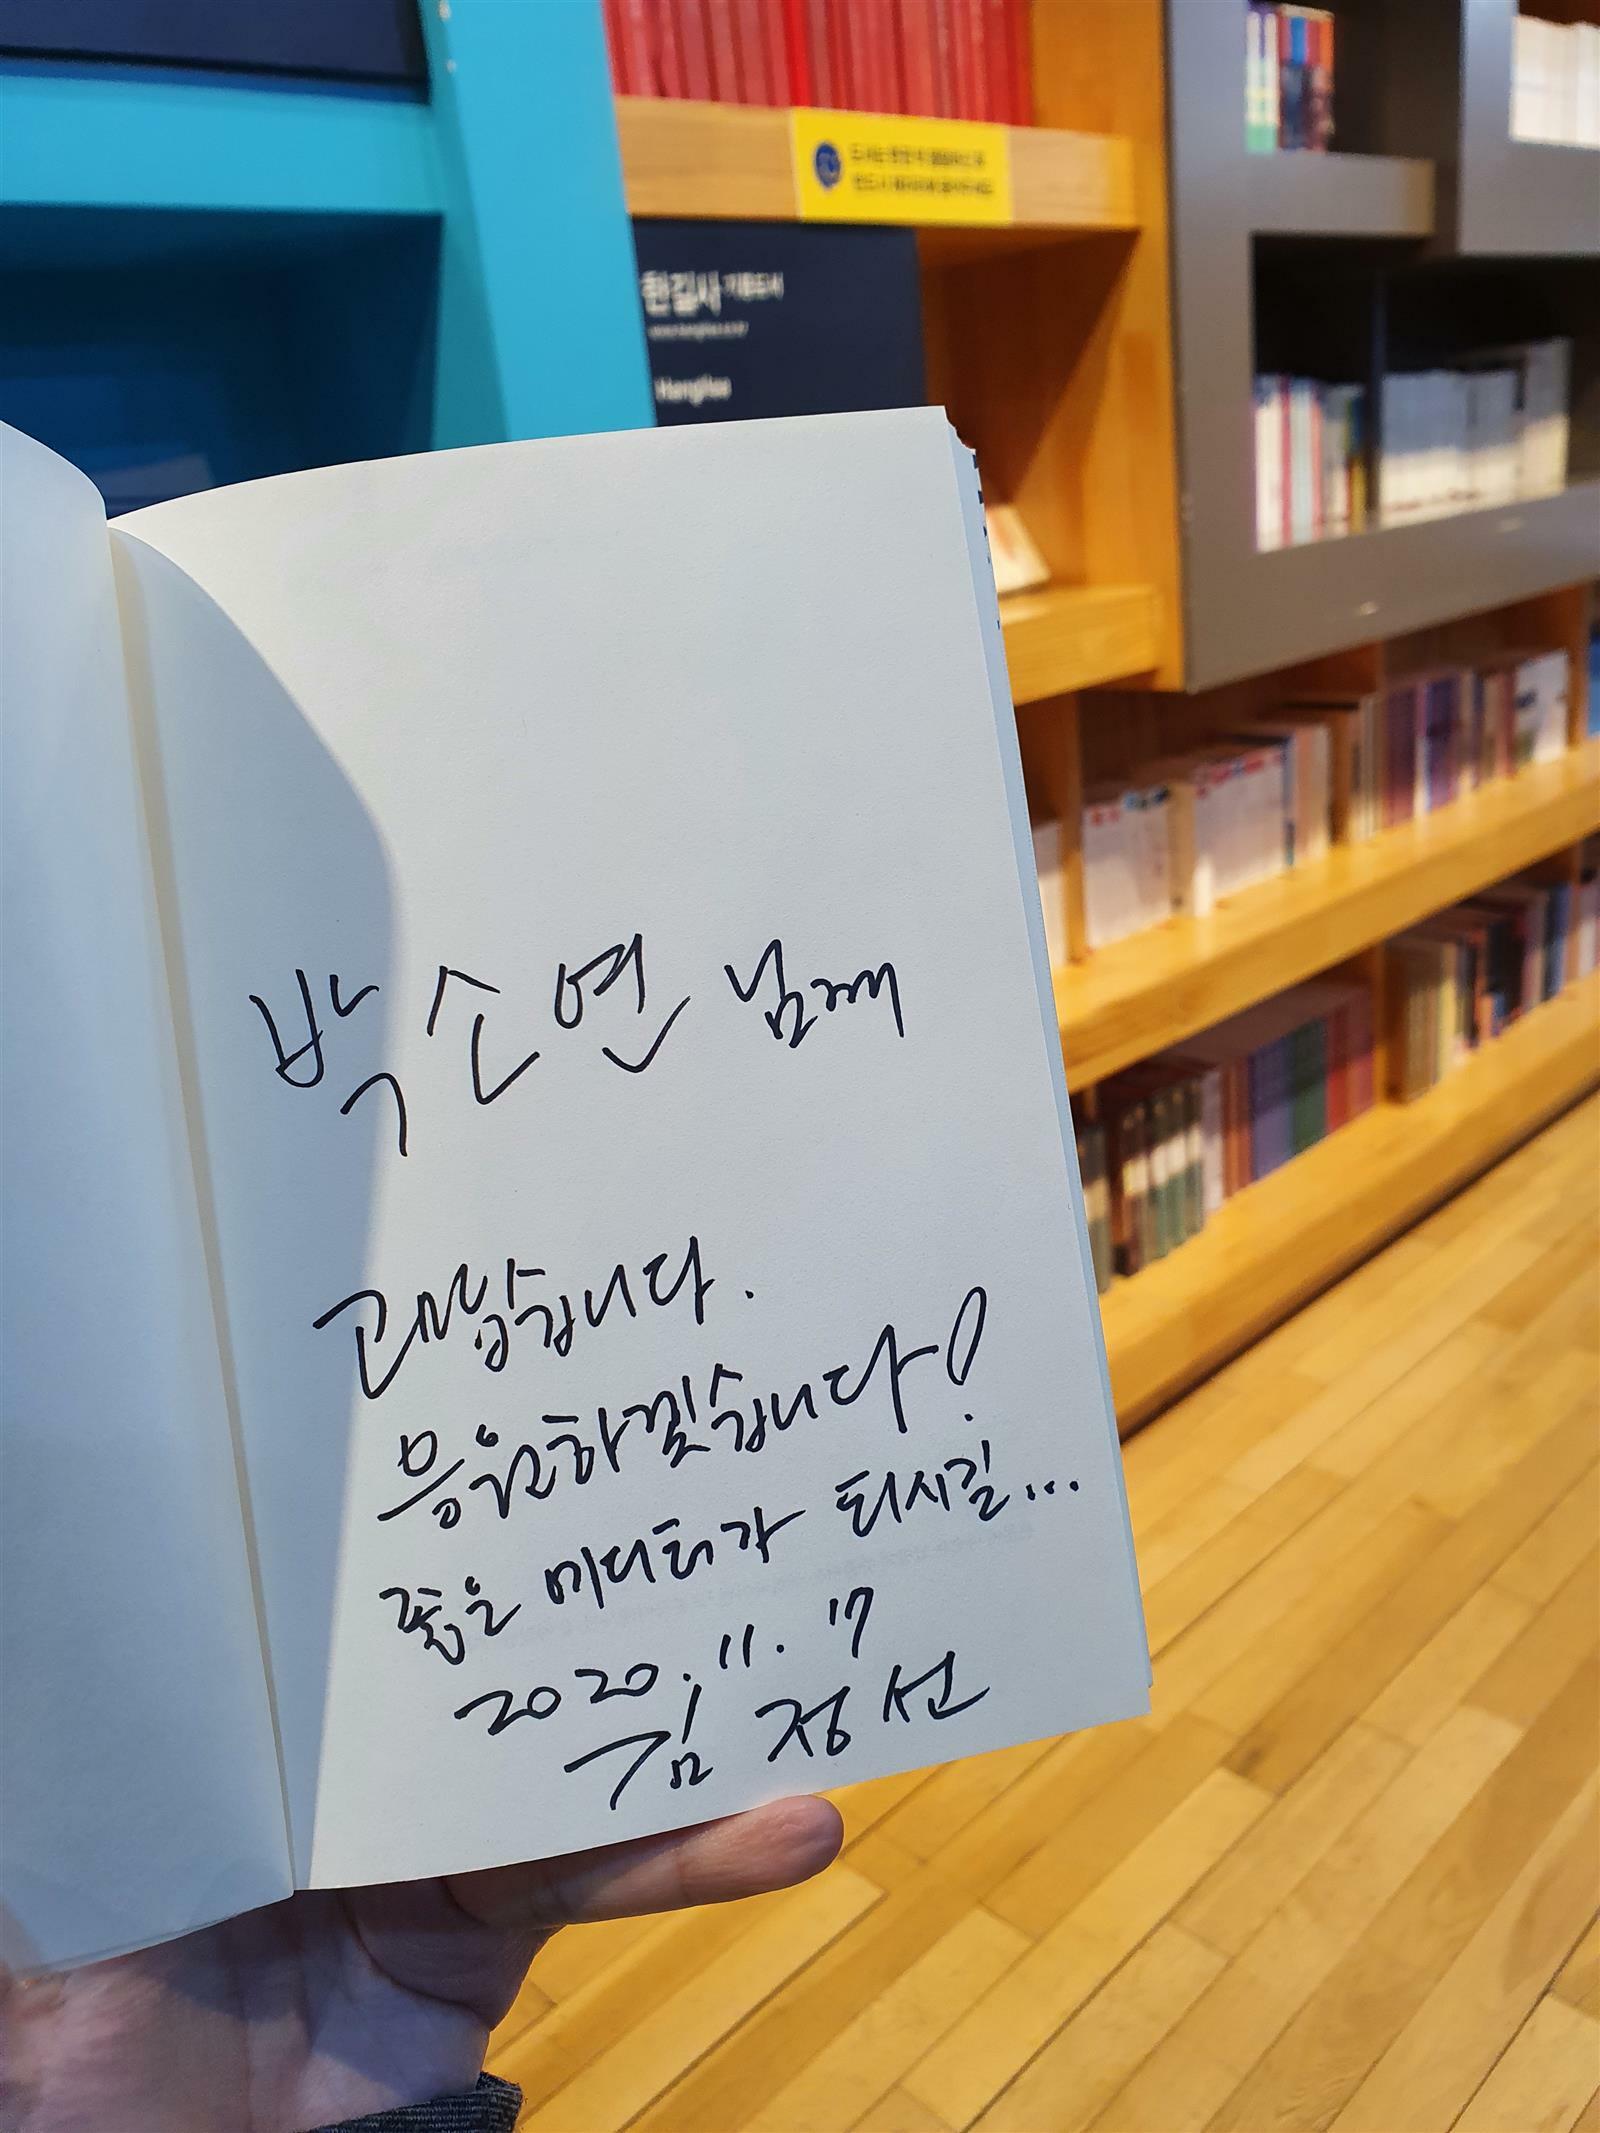 한길사 기증도서
Hangilsa
박소연 님께
고맙습니다.
응원하겠습니다!
좋은 에디터가 되시길...
2020. 11. 17
김정선